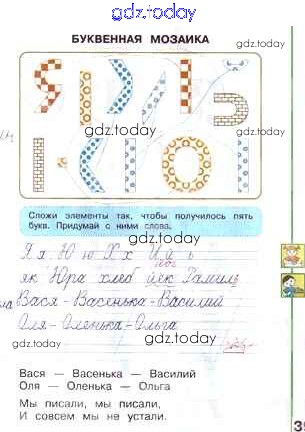 gdz.today
БУКВЕННАЯ МОЗАИКА
gdz.today
gdz.today
gdz.today
Сложи элементы так, чтобы получилось пять
букв. Придумай с ними слова.
gdz.today
Я я Ю ю Х х Й й ь
як Юра хлеб йёк Рамиль
Вася - Васенька - Василий
Оля - Оленька - Ольга
Вася — Васенька — Василий
Оля — Оленька — Ольга
gdz.today
Мы писали, мы писали,
И совсем мы не устали.
gdz.today